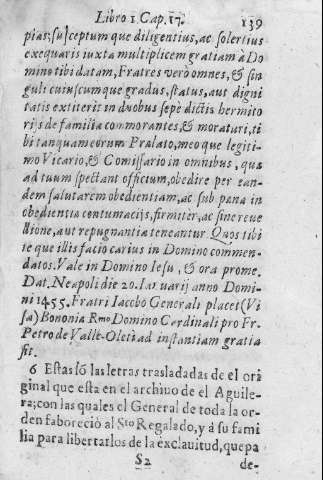 Libro 1. Cap. 17. 139
pias: susceptum que diligentius, ac solertius
exequaris iuxta multiplicem gratiam à Do
mino tibi datam, Fratres verò omnes, & sin
guli cuiuscumque gradus, status, aut digni
tatis extiterit in duobus sepè dictis hermito
rijs de familia commorantes, & moraturi, ti
bi tanquam eorum Prælato, meo que legiti-
mo Vicario, & Comissario in omnibus, quæ
ad tuum spectant officium, obedire per ean-
dem salutarem obedientiam, ac sub pæna in
obedientia contumacijs, firmiter, ac sine reue
llione, aut repugnantia teneantur. Quos tibi
te que illis facio carius in Domino commen-
datos. Vale in Domino Iesu, & ora pro me.
Dat. Neapoli die 20. Ianuarij anno Domi-
ni 1455. Fratri Iacobo Generali placet (Vi
sa) Bononia Rmo Domino Cardinali pro Fr.
Petro de Valle-Oleti ad instantiam gratia
fit.
6 Estas só las letras trasladadas de el ori
ginal que esta en el archiuo de el Aguile-
ra; con las quales el General de toda la or-
den faboreciò al Sto Regalado, y à su fami
lia para libertarlos de la exclauitud, que pa
S2 de-